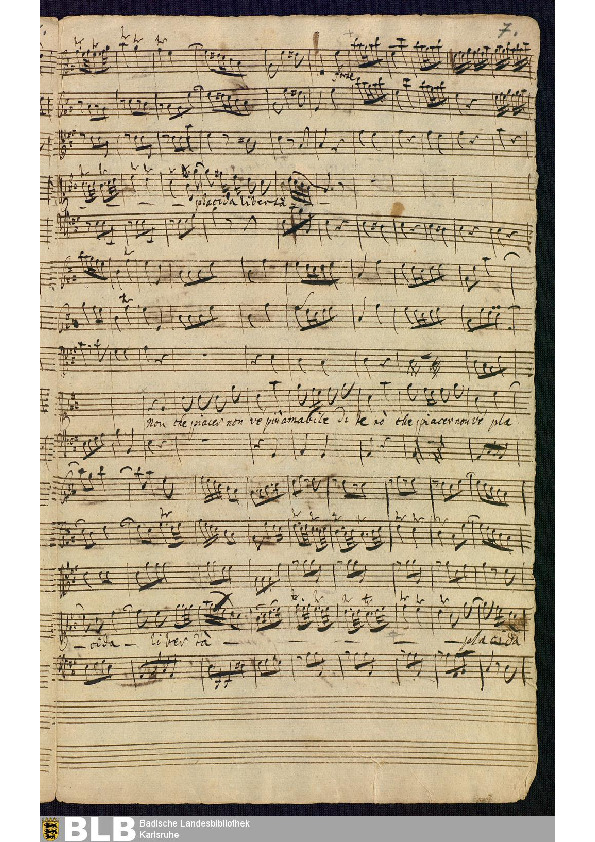 7.
for
placida libertà
Non che piacer non v'è più amabile di te nò che piacer non v'è pla
cida libertà placida
BLB Badische Landesbibliothek
Karlsruhe